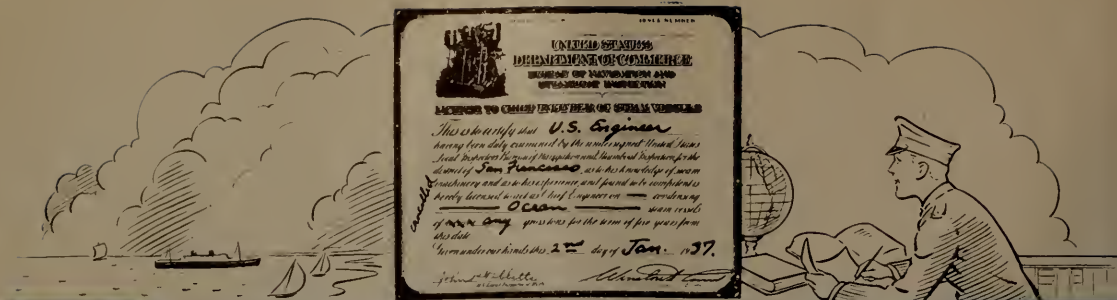 UNITED STATES
DEPARTMENT OF COMMERCE
BUREAU OF NAVIGATION AND
STEAMBOAT INSPECTION
LICENSE TO CHIEF ENGINEER OF STEAM VESSELS
This is to certify that U.S. Engineer
having been duly examined by the undersigned United States
Local Inspectors for the
district of San Francisco as to his knowledge of steam
machinery and as to his experience, and found to be competent is
hereby licensed to act as Chief Engineer on — condensing
Ocean steam vessels
of any gross tons for the term of five years from
this date
Given under our hands this 2nd day of Jan. 1937.
cancelled